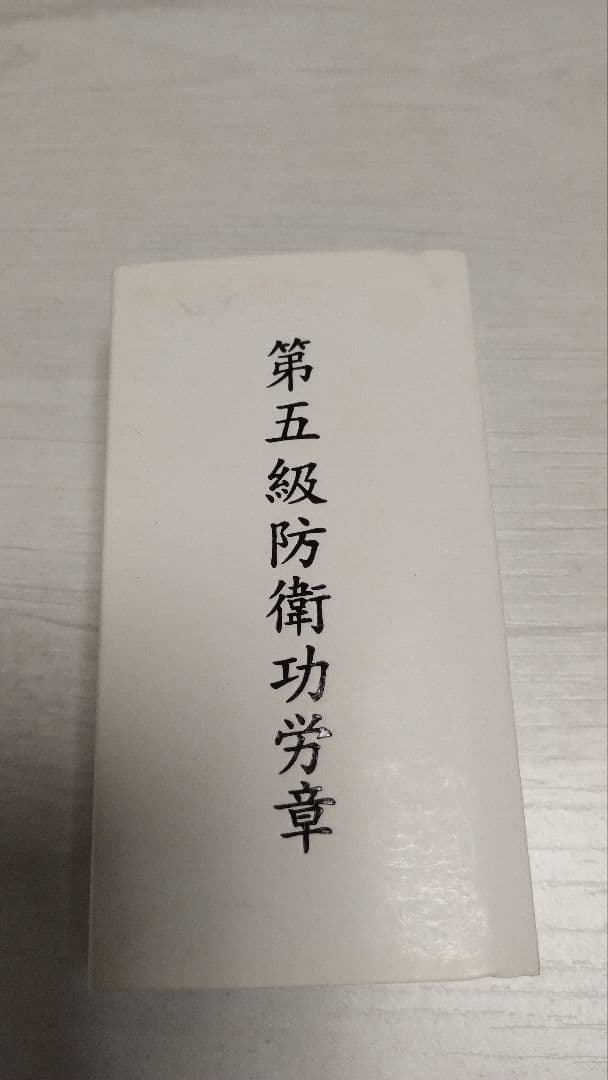 第五級防衛功労章